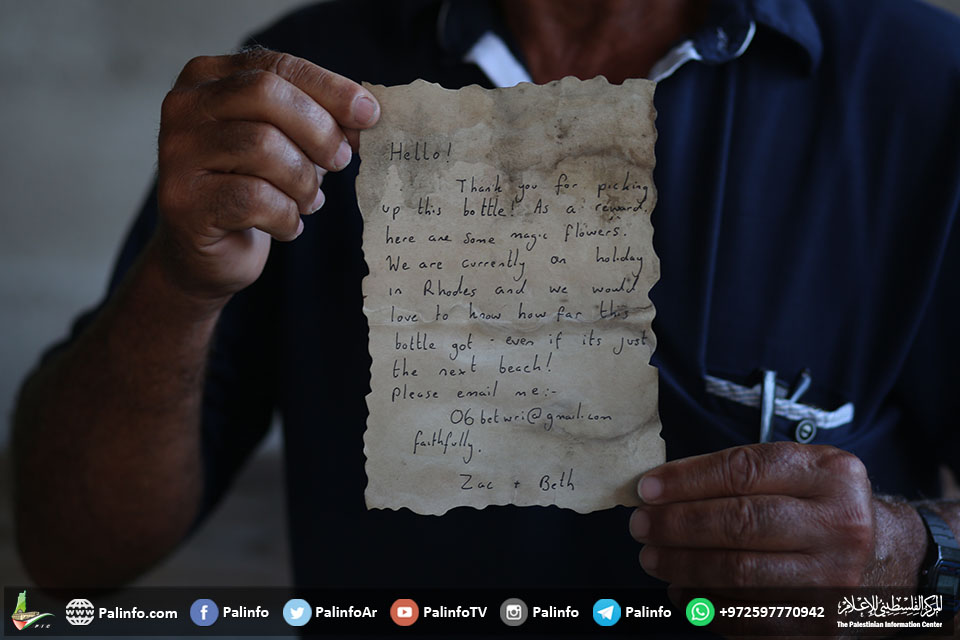 Hello!
Thank you for picking
up this bottle! As a reward,
here are some magic flowers.
We are currently on holiday
in Rhodes and we would
love to know how far this
bottle got - even if its just
the next beach!
Please email me:-
06betwri@gmail.com
faithfully.
Zac + Beth
PIC
Palinfo.com
Palinfo
PalinfoAr
PalinfoTV
Palinfo
Palinfo
+972597770942
المركز الفلسطيني للإعلام
The Palestinian Information Center